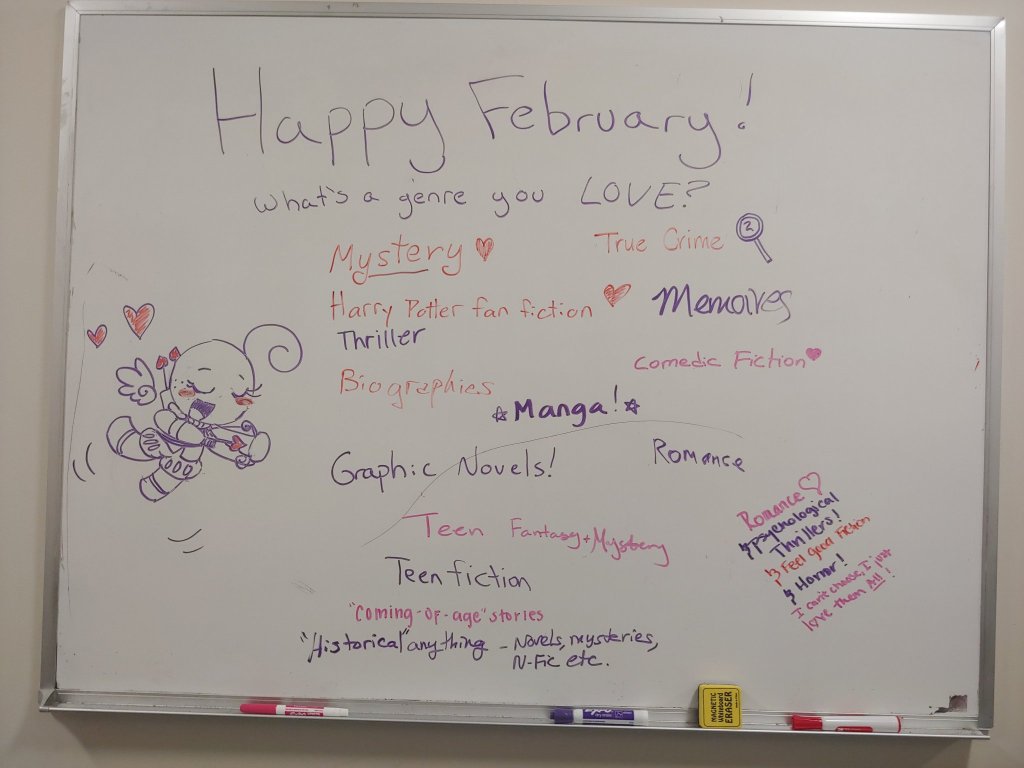 Happy February!
What's a genre you LOVE?
Mystery
True Crime
2
Harry Potter fan fiction
Memoires
Thriller
Comedic Fiction
Biographies
Manga!
Graphic Novels!
Romance
Teen Fantasy + Mystery
Teen fiction
"Coming-of-age" stories
"Historical" anything - Novels, mysteries,
N-Fic etc.
Romance
Psychological
Thrillers!
Feel Good Fiction
Horror!
I can't choose, I just
love them All!
EXPO
MAGNETIC
Whiteboard
ERASER